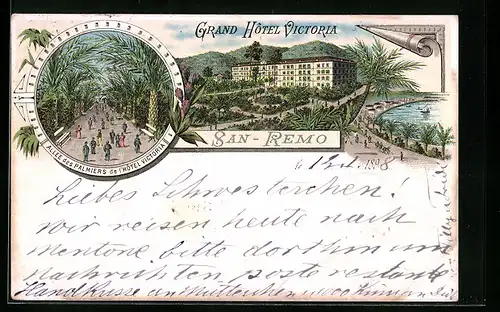 GRAND HÔTEL VICTORIA
ALLÉE des PALMIERS de l'HÔTEL VICTORIA
SAN-REMO
1898
Liebes Schwesterchen!
Wir reisen heute nach
Mentone bitte dorthin um
Nachrichten poste restante
Handküsse an Mütterchen 1000